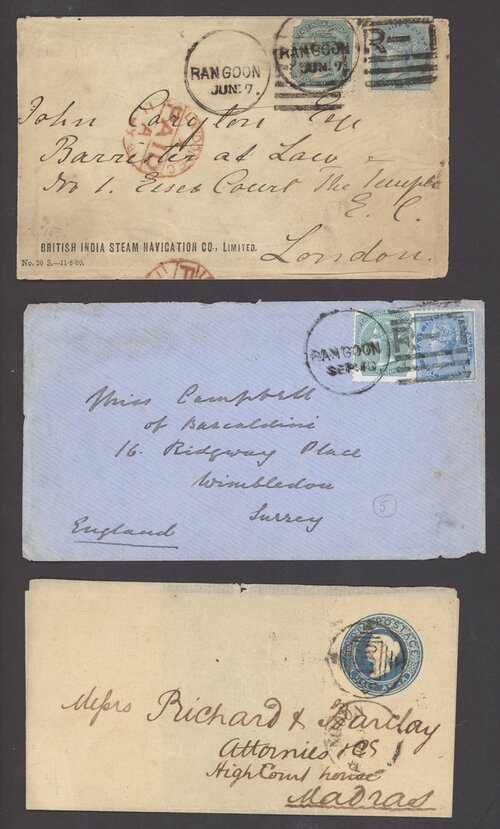 RANGOON
JUN. 7.
RANGOON
JUN. 7.
R-
John Carlton Esq
PAID
Barrister at Law -
No 1. Essex Court The Temple
E. C.
BRITISH INDIA STEAM NAVIGATION CO., LIMITED.
London.
RANGOON
SEP.
R-
Miss Campbell
of Barcaldine
16. Ridgway Place
Wimbledon
Surrey
5
England
INDIA POSTAGE
Messrs Richard & Barclay
Attornies &cs
High Court house
Madras